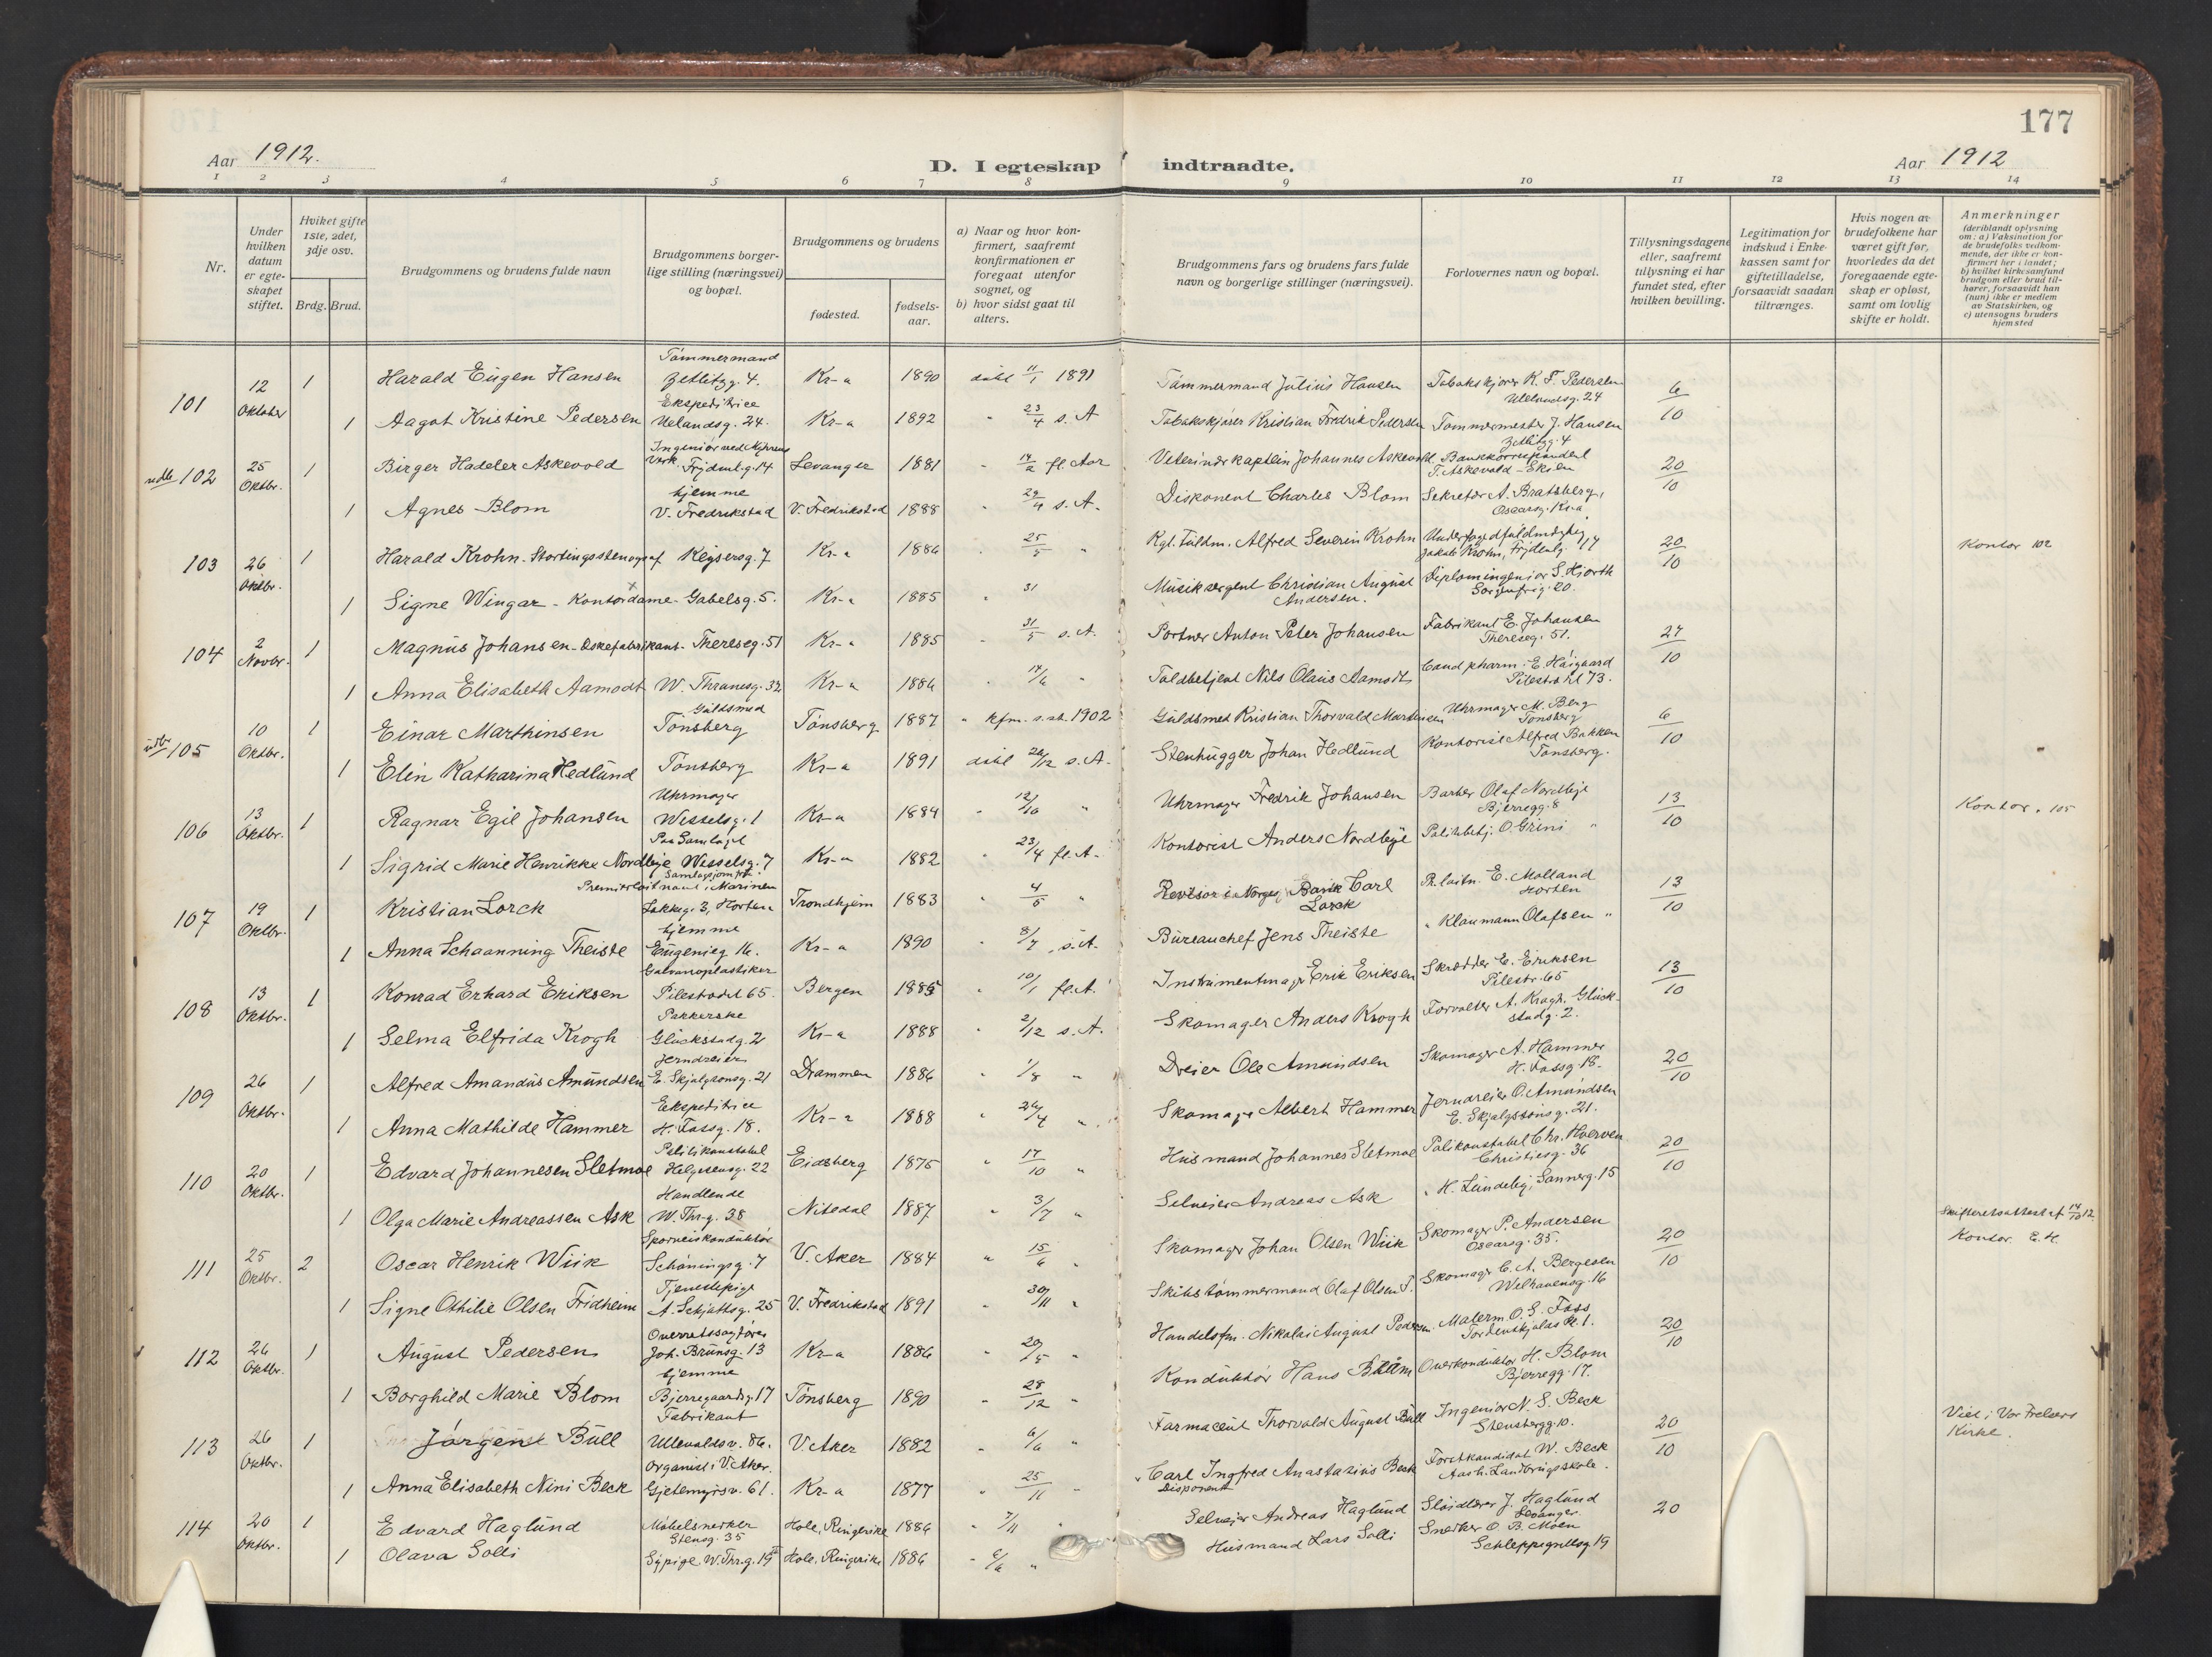 177
Aar 1912.
D. I egteskap indtraadte.
Aar 1912
1 2 3 4 5 6 7 8 9 10 11 12 13 14
Nr.
Under hvilken datum er egteskapet stiftet.
Hviket gifte 1ste, 2det, 3dje osv.
Brdg. Brud.
Brudgommens og brudens fulde navn
Brudgommens borgerlige stilling (næringsvei) og bopæl.
Brudgommens og brudens
fødested.
fødselsaar.
a) Naar og hvor konfirmert, saafremt konfirmationen er foregaat utenfor sognet, og
b) hvor sidst gaat til alters.
Brudgommens fars og brudens fars fulde navn og borgerlige stillinger (næringsvei).
Forlovernes navn og bopæl.
Tillysningsdagene eller, saafremt tillysning ei har fundet sted, efter hvilken bevilling.
Legitimation for indskud i Enkekassen samt for giftetilladelse, forsaavidt saadan tiltrænges.
Hvis nogen av brudefolkene har været gift før, hvorledes da det foregaaende egteskap er opløst, samt om lovlig skifte er holdt.
Anmerkninger (deriblandt oplysning om: a) Vaksination for de brudefolks vedkommende, der ikke er konfirmert her i landet; b) hvilket kirkesamfund brudgom eller brud tilhører, forsaavidt han (hun) ikke er medlem av Statskirken, og c) utensogns bruders hjemsted
101 12 Oktober 1 Harald Eugen Hansen Tømmermand Zetlitzg. 4. Kr-a 1890 døbt 11/1 1891 Tømmermand Julius Hansen Tobakskjører K. F. Pedersen Uelandsg. 24 6/10
1 Aagot Kristine Pedersen Ekspeditrice Uelandsg. 24. Kr-a 1892 " 23/4 s. A Tobakskjører Kristian Fredrik Pedersen Tømmermester J. Hansen Zetlitzg. 4
102 25 Oktbr. 1 Birger Hadeler Askevold Ingeniør ved Myrens Verk Frydenl.g. 14 Levanger 1881 " 14/2 fl. Aar Veterinærkaptein Johannes Askevold Bankkorrespondent T. Askevold - Skien 20/10
1 Agnes Blom hjemme V. Fredrikstad V. Fredrikstad 1888 " 29/4 s. A. Disponent Charles Blom Sekretær A. Bratsberg, Oscarsg. Kr.a
103 26 Oktbr. 1 Harald Krohn - Stortingsstenograf Keysersg. 7 Kr-a 1886 " 25/5 " Kgl. Fuldm. Alfred Severin Krohn Underfogedfuldmægtig Jakob Krohn, Frydenlg. 14 20/10 Kontor 102
1 Signe Wingar - Kontordame - Gabelsg. 5. Kr-a 1885 " 31 Musiksergent Christian August Andersen. Diplomingeniør S. Hjorth Sorgenfrig. 20.
104 2 Novbr. 1 Magnus Johansen - Eskefabrikant - Thereseg. 51 Kr-a 1885 " 31/5 s. A. Portner Anton Peter Johansen Fabrikant E. Johansen Thereseg. 51. 27/10
1 Anna Elisabeth Aamodt W. Thranesg. 32 Kr-a 1886 " 14/6 " Toldbetjent Nils Olaus Aamodt Cand pharm. E. Høigaard Pilestræt 73.
105 10 Oktbr. 1 Einar Marthinsen Guldsmed Tønsberg Tønsberg 1887 " kfm. s. st. 1902 Guldsmed Kristian Thorvald Marthinsen Uhrmager M. Berg Tønsberg 6/10
1 Elin Katharina Hedlund Tønsberg Kr-a 1891 døbt 26/12 s. A. Stenhugger Johan Hedlund Kontorist Alfred Bakken Tønsberg.
106 13 Oktbr. 1 Ragnar Egil Johansen Uhrmager Wesselsg. 1 Kr-a 1884 " 12/10 " Uhrmager Fredrik Johansen Barber Olaf Nordbye Bjerregg. 8 13/10 Kontor. 105
1 Sigrid Marie Henrikke Nordbye Paa Samlaget Wesselsg. 7 Samlagsjomfru Kr-a 1882 " 23/4 fl. A. Kontorist Anders Nordbye Politibetj. O. Grini "
107 19 Oktbr. 1 Kristian Lorck Premierløitnant i Marinen Løkkeg. 3, Horten Trondhjem 1883 " 4/5 " Revisor i Norges Bank Carl Lorck Pr. løitn. E. Molland Horten 13/10
1 Anna Schaanning Theiste hjemme Eugenieg 16. Kr-a 1890 " 8/7 s. A. Bureauchef Jens Theiste " Klaumann Olafsen "
108 13 Oktbr. 1 Konrad Erhard Eriksen Galvanoplastiker Pilestrædet 65. Bergen 1885 " 10/1 fl. A. Instrumentmager Erik Eriksen Skrædder E. Eriksen Pilestr. 65 13/10
1 Selma Elfrida Krogh Pakkerske Glückstadg. 2 Kr-a 1888 " 2/12 s. A. Skomager Anders Krogh Forvalter A. Krogh. Glückstadg. 2.
109 26 Oktbr. 1 Alfred Amandus Amundsen Jerndreier E. Skjalgsonsg. 21 Drammen 1886 " 1/8 " Dreier Ole Amundsen Skomager A. Hammer H. Fossg. 18. 20/10
1 Anna Mathilde Hammer Ekspeditrice H. Fossg. 18. Kr-a 1888 " 26/4 " Skomager Albert Hammer Jerndreier O. Amundsen E. Skjalgssønsg. 21.
110 20 Oktbr. 1 Edvard Johannesen Sletmoe Politikonstabel Helgesensg. 22 Eidsberg 1875 " 17/10 " Husmand Johannes Sletmoe Politikonstabel Chr. Hverven Christiesg. 36 20/10
1 Olga Marie Andreassen Ask Handlende W. Thr.g. 38 Nitedal 1887 " 3/7 " Selveier Andreas Ask " H. Lundeby, Sannerg. 15
111 25 Oktbr. 2 Oscar Henrik Wiik Sporveiskonduktør Schøningsg. 7 V. Aker 1884 " 15/6 " Skomager Johan Olsen Wiik Skomager P. Andersen Oscarsg. 35. 20/10 Skifteretsattest af 14/10 12 Kontor. E. H.
1 Signe Othilie Olsen Fridheim Tjenestepige A. Schjøttsg. 25 V. Fredrikstad 1891 " 30/11 " Skibstømmermand Olaf Olsen F. Skomager C. A. Bergesen Welhavensg. 16
112 26 Oktbr. 1 August Pedersen Overretssagfører Joh. Brunsg. 13 Kr-a 1886 " 20/5 " Handelsfm. Nikolai August Pedersen Malerm. O. S. Foss Tordenskjolds Pl. 1. 20/10
1 Borghild Marie Blom hjemme Bjerregaardsg. 17 Tønsberg 1890 " 28/12 " Konduktør Hans Blom Overkonduktør H. Blom Bjerregg. 17.
113 26 Oktbr. 1 Jørgen Bull Fabrikant Ullevoldsv. 86. V. Aker 1882 " 6/6 " Farmaceut Thorvald August Bull Ingeniør N. S. Beck Stensbergg. 10. 20/10 Viet i Vor Frelsers Kirke.
1 Anna Elisabeth Nini Beck Organist i V. Aker. Gjetemyrsv. 61. Kr-a 1877 " 25/11 " Carl Ingfred Anastasius Beck Disponent Forstkandidat W. Beck Aash. Landbrugsskole.
114 20 Oktbr. 1 Edvard Haglund Møbelsnekker Stensg. 35 Hole, Ringerike 1886 " 7/11 " Selveier Andreas Haglund Sløidlærer J. Haglund Levanger. 20
1 Olava Solli Sypige W. Thr.g. 19 Hole, Ringerike 1886 " 6/6 " Husmand Lars Solli Snekker O. B. Moen Schleppegrellsg 19